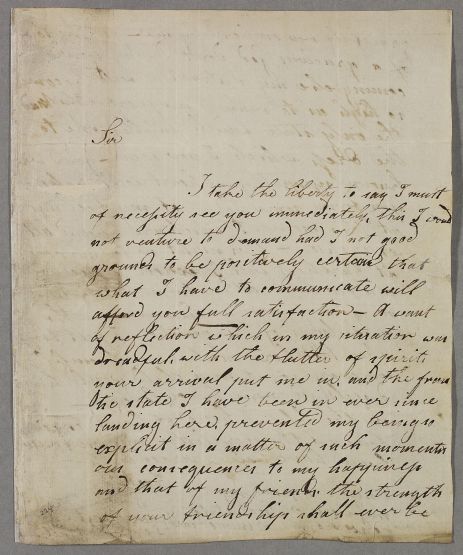 Sir
I take the liberty to say I must
of necessity see you immediately, this I would
not venture to demand had I not good
grounds to be positively certain that
what I have to communicate will
afford you full satisfaction — A want
of reflection which in my situation was
dreadful, with the flutter of spirits
your arrival put me in, and the
the state I have been in ever since
landing here prevented my being
explicit in a matter of such momentu
ous consequences to my happiness
and that of my friends, the strength
of your friendship shall ever be